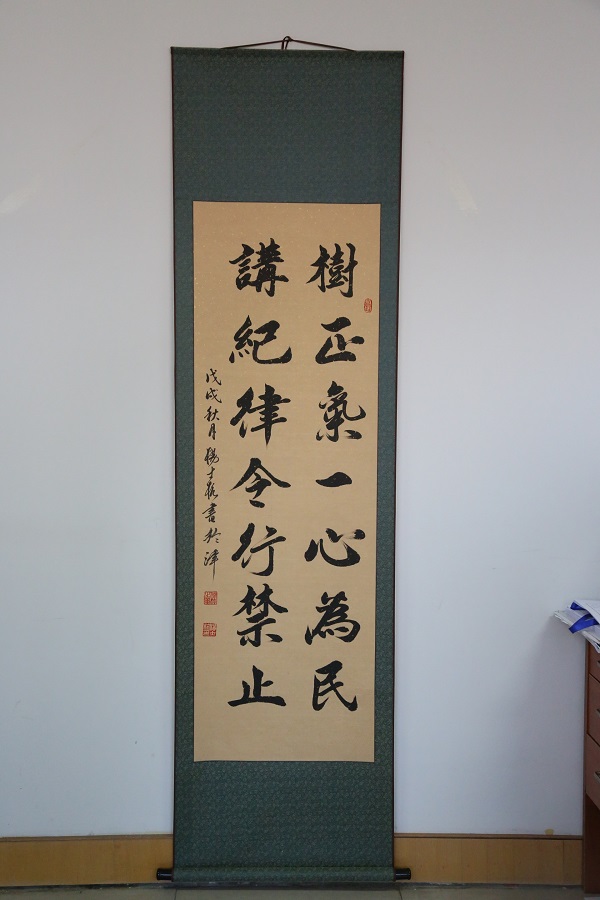 樹正氣一心為民
講紀律令行禁止
戊戌秋月楊士林書於津